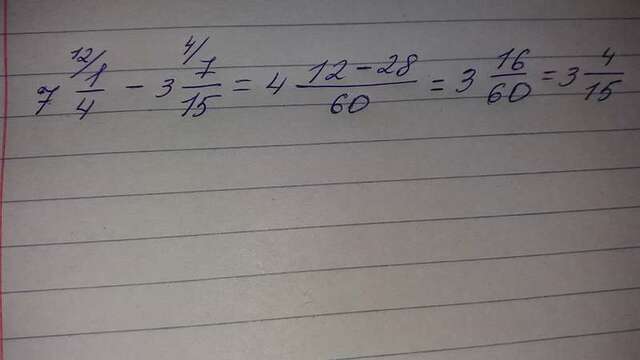 7 12/ 1/4 - 3 4/ 7/15 = 4 (12 - 28)/60 = 3 16/60 = 3 4/15